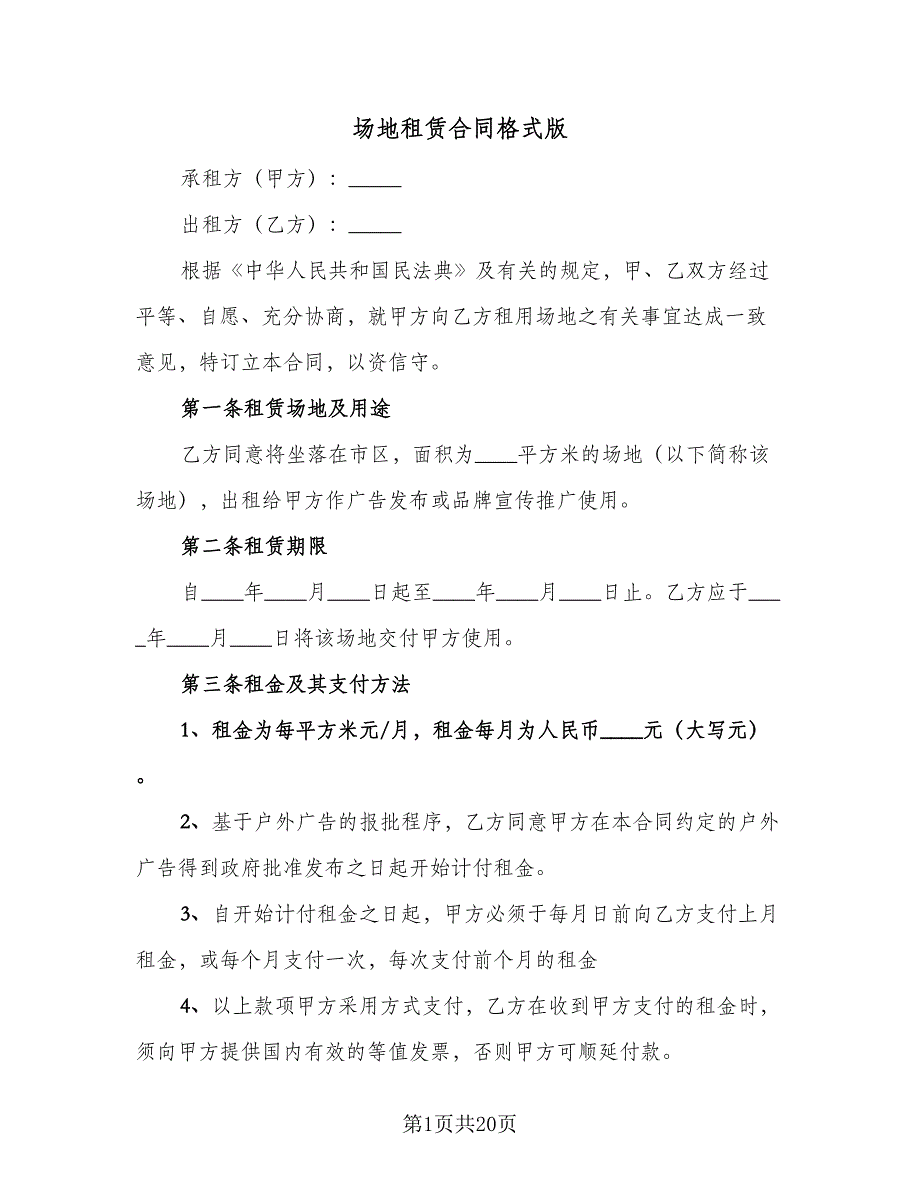 场地租赁合同格式版
承租方（甲方）：_____
出租方（乙方）：_____
根据《中华人民共和国民法典》及有关的规定，甲、乙双方经过
平等、自愿、充分协商，就甲方向乙方租用场地之有关事宜达成一致
意见，特订立本合同，以资信守。
第一条租赁场地及用途
乙方同意将坐落在市区，面积为____平方米的场地（以下简称该
场地），出租给甲方作广告发布或品牌宣传推广使用。
第二条租赁期限
自____年____月____日起至____年____月____日止。乙方应于___
_年____月____日将该场地交付甲方使用。
第三条租金及其支付方法
1、租金为每平方米元/月，租金每月为人民币____元（大写元）
。
2、基于户外广告的报批程序，乙方同意甲方在本合同约定的户外
广告得到政府批准发布之日起开始计付租金。
3、自开始计付租金之日起，甲方必须于每月日前向乙方支付上月
租金，或每个月支付一次，每次支付前个月的租金
4、以上款项甲方采用方式支付，乙方在收到甲方支付的租金时，
须向甲方提供国内有效的等值发票，否则甲方可顺延付款。
第1页共20页